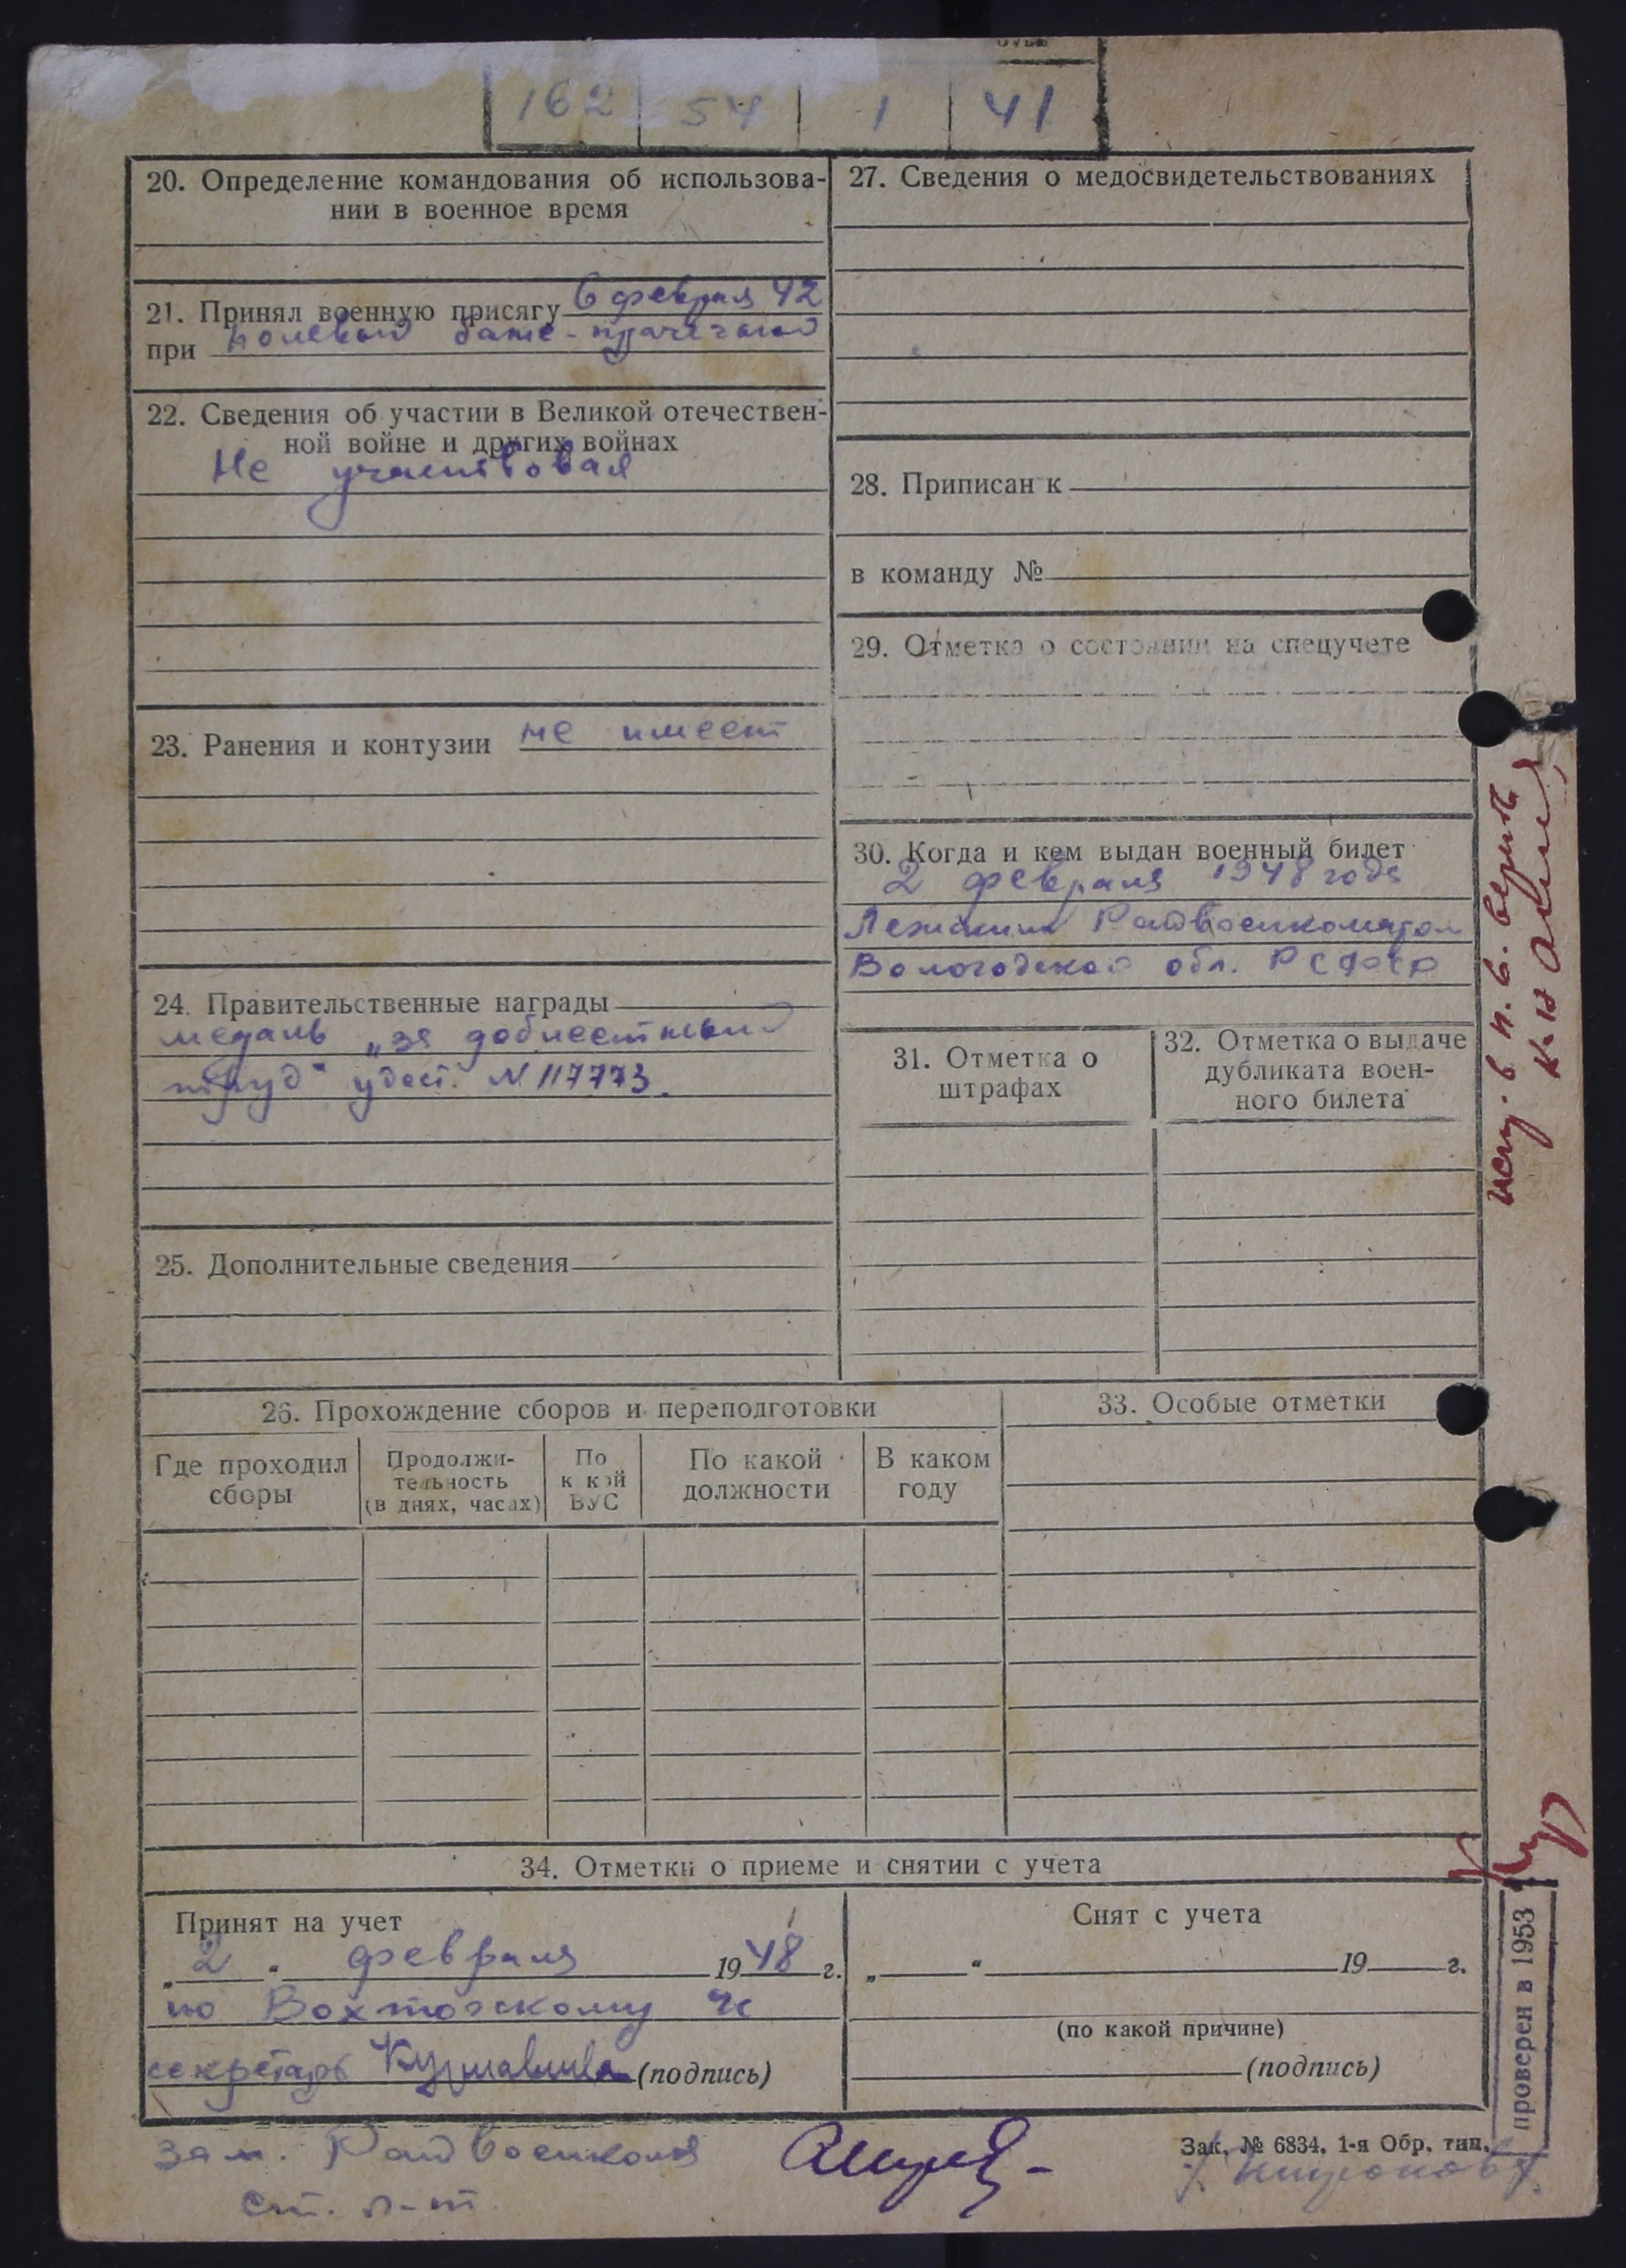 162 54 1 41
20. Определение командования об использова-
нии в военное время
21. Принял военную присягу 6 февраля 42
при полевой бане-прачечной
22. Сведения об участии в Великой отечествен-
ной войне и других войнах
Не участвовал
23. Ранения и контузии не имеет
24. Правительственные награды
медаль „за доблестный
труд“ удост. N 117773.
25. Дополнительные сведения
27. Сведения о медосвидетельствованиях
28. Приписан к
в команду №
29. Отметка о состоянии на спецучете
30. Когда и кем выдан военный билет
2 февраля 1948 года
Лежским Райвоенкоматом
Вологодской обл. РСФСР
31. Отметка о
штрафах
32. Отметка о выдаче
дубликата воен-
ного билета
26. Прохождение сборов и переподготовки
Где проходил
сборы
Продолжи-
тельность
(в днях, часах)
По
к кой
ВУС
По какой
должности
В каком
году
33. Особые отметки
34. Отметки о приеме и снятии с учета
Принят на учет
„ 2 “ февраля 1948 г.
по Вохтожскому
секретарь (подпись)
Снят с учета
„ “ 19 г.
(по какой причине)
(подпись)
зам. Райвоенкома
ст. л-т
Зак. № 6834. 1-я Обр. тип.
проверен в 1953